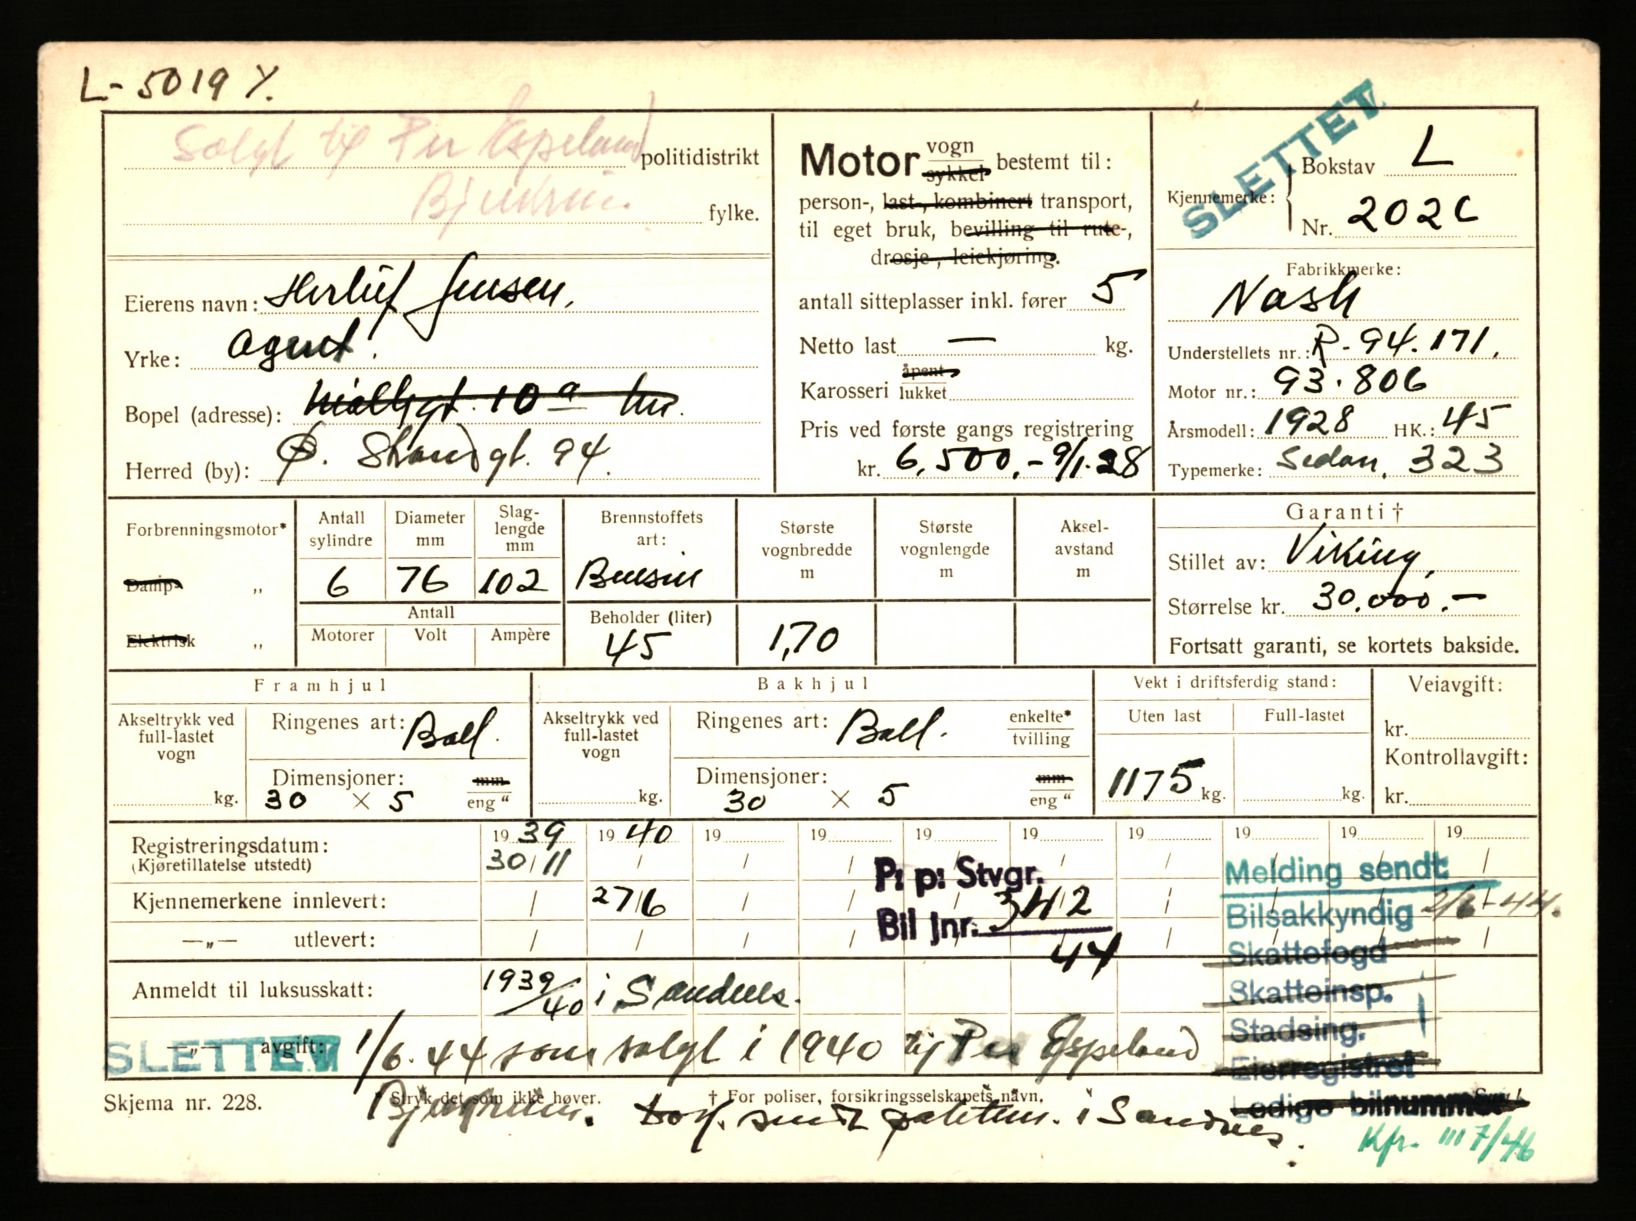 L-5019 Y.
Solgt til Per Espeland politidistrikt
Bjerkreim. fylke.
Motor vogn sykkel bestemt til:
person-, last-, kombinert transport,
til eget bruk, bevilling til rute-,
drosje-, leiekjøring.
antall sitteplasser inkl. fører 5
Netto last — kg.
Karosseri åpent lukket
Pris ved første gangs registrering
kr. 6,500.- 9/1.28
SLETTET
Kjennemerke: Bokstav L
Nr. 202C
Fabrikkmerke:
Nash
Understellets nr.: R-94.171.
Motor nr.: 93.806
Årsmodell: 1928 HK.: 45
Typemerke: Sedan. 323
Eierens navn: Herluf Jensen.
Yrke: agent.
Bopel (adresse): 10a
Herred (by): Ø. Strandgt. 94.
Forbrenningsmotor*
Damp- „
Elektrisk „
Antall sylindre 6
Diameter mm 76
Slaglengde mm 102
Antall
Motorer Volt Ampère
Brennstoffets art: Bensin
Beholder (liter) 45
Største vognbredde m 1,70
Største vognlengde m
Aksel-avstand m
Garanti †
Stillet av: Viking.
Størrelse kr. 30.000.-
Fortsatt garanti, se kortets bakside.
Framhjul
Akseltrykk ved full-lastet vogn kg.
Ringenes art: Ball.
Dimensjoner: mm
30 × 5 eng "
Bakhjul
Akseltrykk ved full-lastet vogn kg.
Ringenes art: Ball. enkelte* tvilling
Dimensjoner: mm
30 × 5 eng "
Vekt i driftsferdig stand:
Uten last Full-lastet
1175 kg. kg.
Veiavgift:
kr.
Kontrollavgift:
kr.
Registreringsdatum: 19 39 19 40 19 19 19 19 19 19 19 19
(Kjøretillatelse utstedt) 30/11
Kjennemerkene innlevert: 27/6
—„— utlevert:
P: p: Stvgr.
Bil Jnr. 342
44
Melding sendt:
Bilsakkyndig 2/6-44.
Skattefogd
Skatteinsp.
Stadsing.
Eierregistret
Ledige bilnummer
Anmeldt til luksusskatt: 1939/40 i Sandnes.
—„— avgift:
SLETTET 1/6.44 som solgt i 1940 til Per Espeland
Bjerkreim.
Skjema nr. 228. * Stryk det som ikke høver. † For poliser, forsikringsselskapets navn.
i Sandnes.
Kfr. 7/46